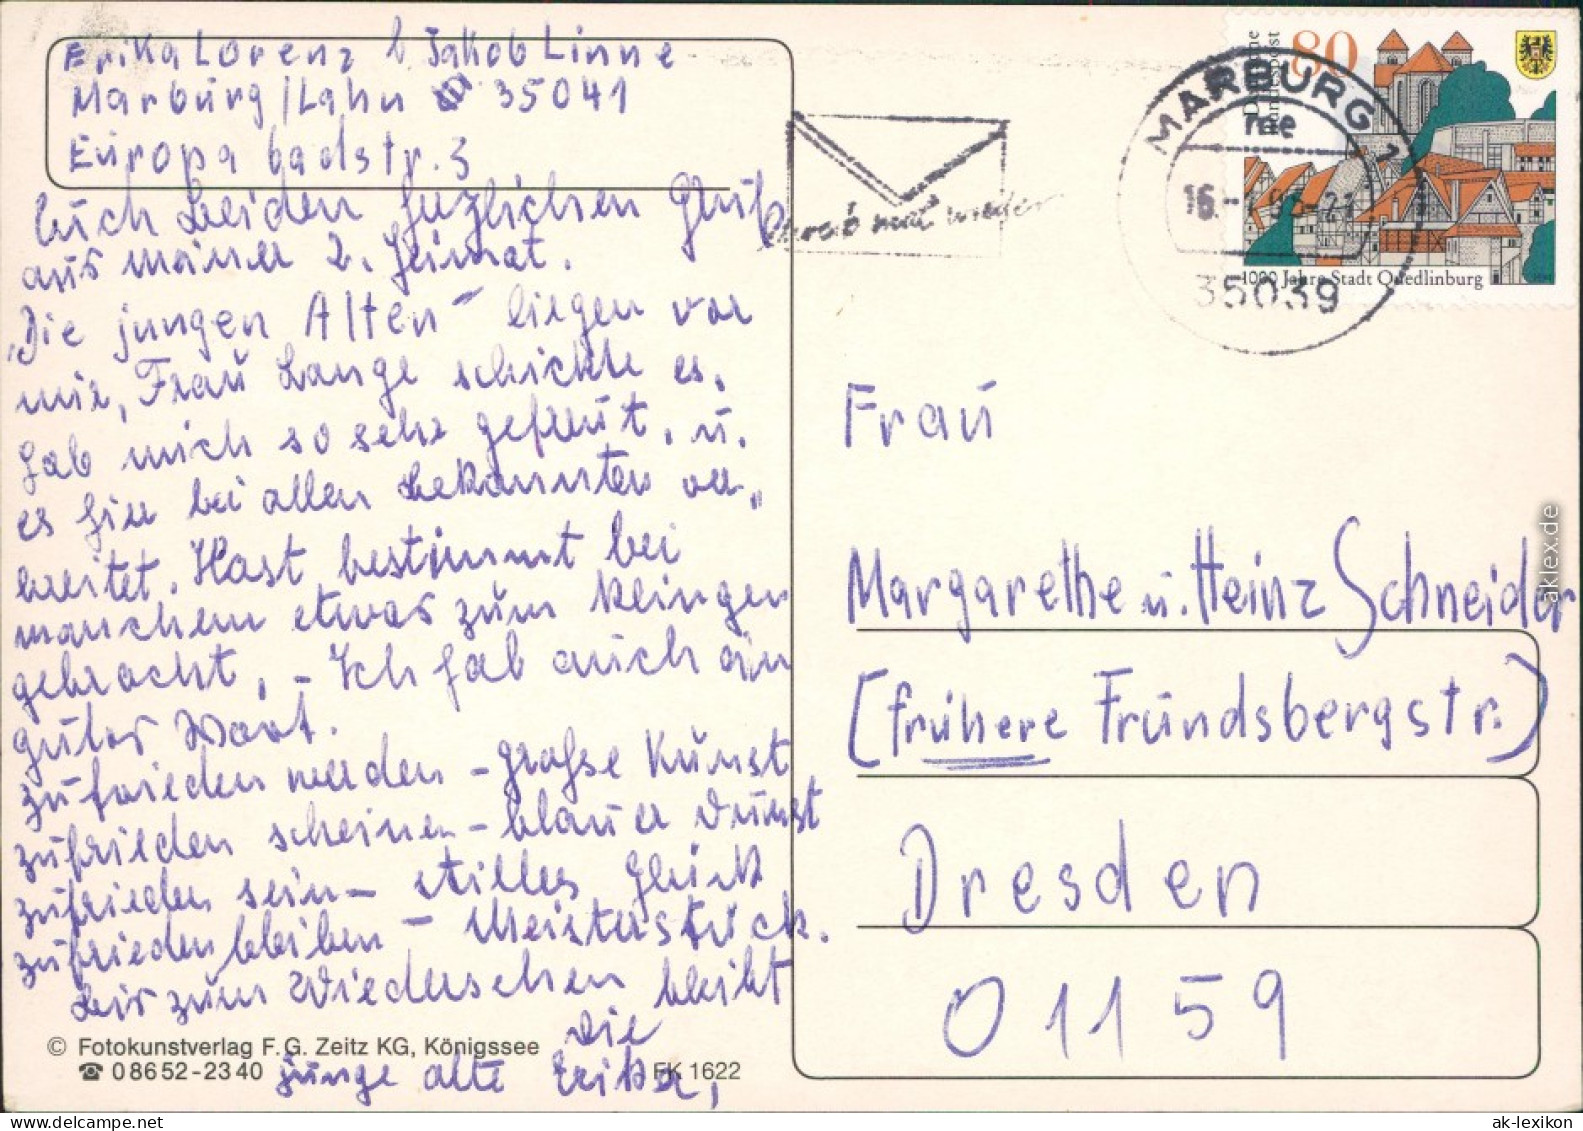 Erika Lorenz b Jakob Linne
Marburg/Lahn 35041
Europabadstr. 3
Euch beiden herzlichen Gruß
aus meiner 2. Heimat.
"Die jungen Alten" liegen vor
mir, Frau Lange schickte es.
Hab mich so sehr gefreut. u.
es hier bei allen Bekannten ver-
breitet. Hast bestimmt bei
manchem etwas zum klingen
gebracht. - Ich hab auch ein
gutes Wort.
zufrieden werden - große Kunst
zufrieden scheinen - blauer Dunst
zufrieden sein - stilles Glück
zufrieden bleiben - Meisterstück.
Bis zum Wiedersehen bleibt
die
junge alte Erika,
© Fotokunstverlag F.G. Zeitz KG, Königssee
☎ 08652-2340
FK 1622
Schreib mal wieder
MARBURG 1
me
35039
80
Deutsche Bundespost
1000 Jahre Stadt Quedlinburg
Frau
Margarethe u. Heinz Schneider
(frühere Frundsbergstr.)
Dresden
01159
aklex.de
www.delcampe.net
ak-lexikon